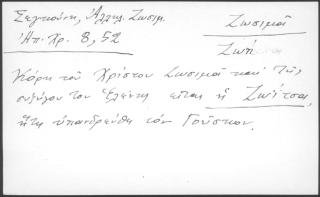 Σεγκούνη, Αλληλ. Ζωσιμ.
Ηπ. Χρ. 8, 52
Ζωσιμᾶ
Ζωΐτσα
Κόρη τοῦ Χρίστου Ζωσιμᾶ καί τῆς
συζύγου του Ἑλένης εἶναι ἡ Ζωΐτσα,
ἥτις ὑπανδρεύθη τόν Γοῦστον.